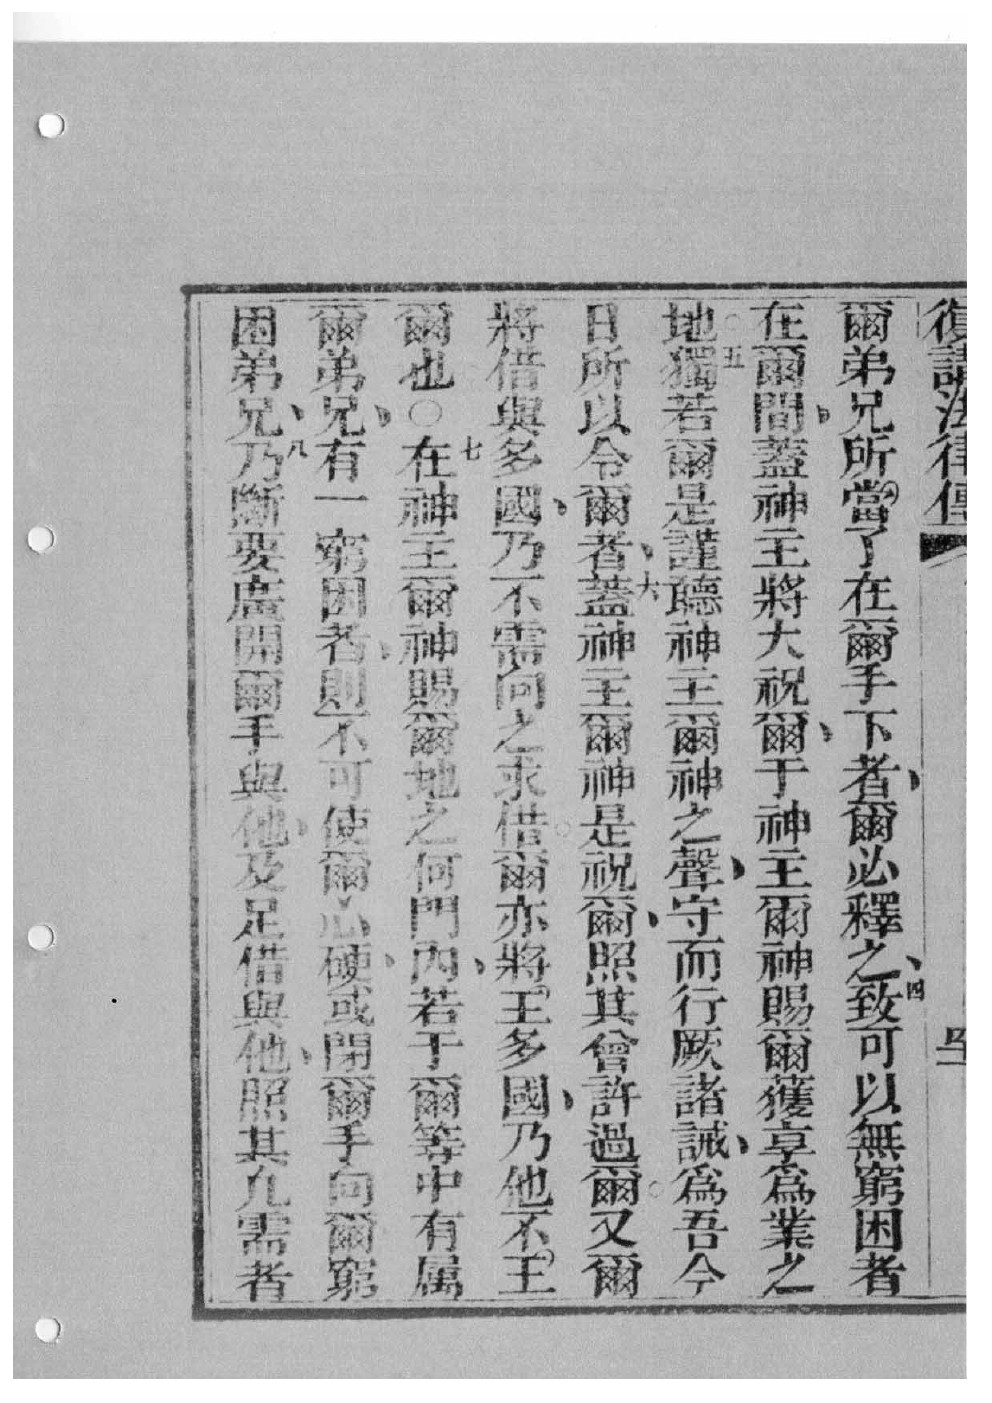 復講法律傳
爾弟兄所當了在爾手下者爾必釋之四致可以無窮困者
在爾間蓋神主將大祝爾于神主爾神賜爾獲享為業之
地○五獨若爾是謹聽神主爾神之聲守而行厥諸誡為吾今
日所以令爾者六蓋神主爾神是祝爾照其曾許過爾○又爾
將借與多國乃不需向之求借○爾亦將王多國乃他不王
爾也○七在神主爾神賜爾地之何門內若于爾等中有属
爾弟兄有一窮困者則不可使爾心硬或閉爾手向爾窮
困弟兄八乃斷要廣開爾手與他及足借與他照其凢需者